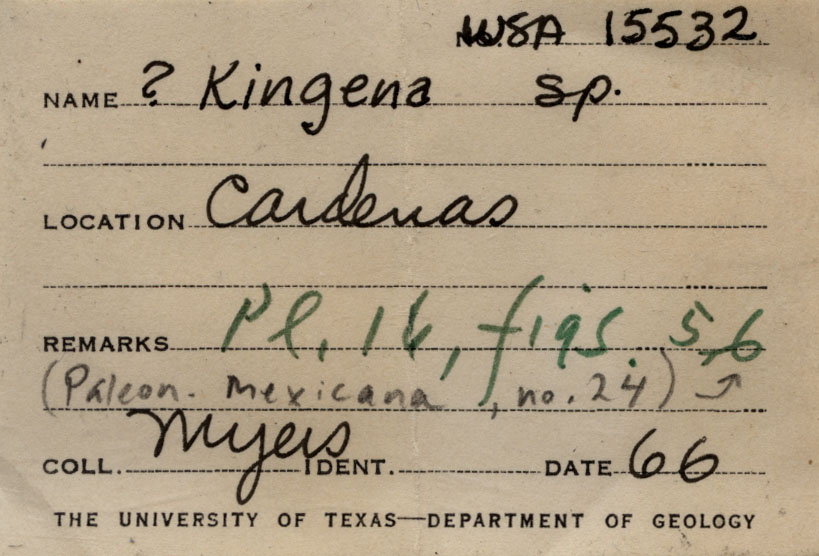 WSA 15532
NAME ? Kingena sp.
LOCATION Cardenas
REMARKS Pl. 16, figs. 5,6
(Paleon. Mexicana, no. 24)
COLL. Myers IDENT. DATE 66
THE UNIVERSITY OF TEXAS—DEPARTMENT OF GEOLOGY